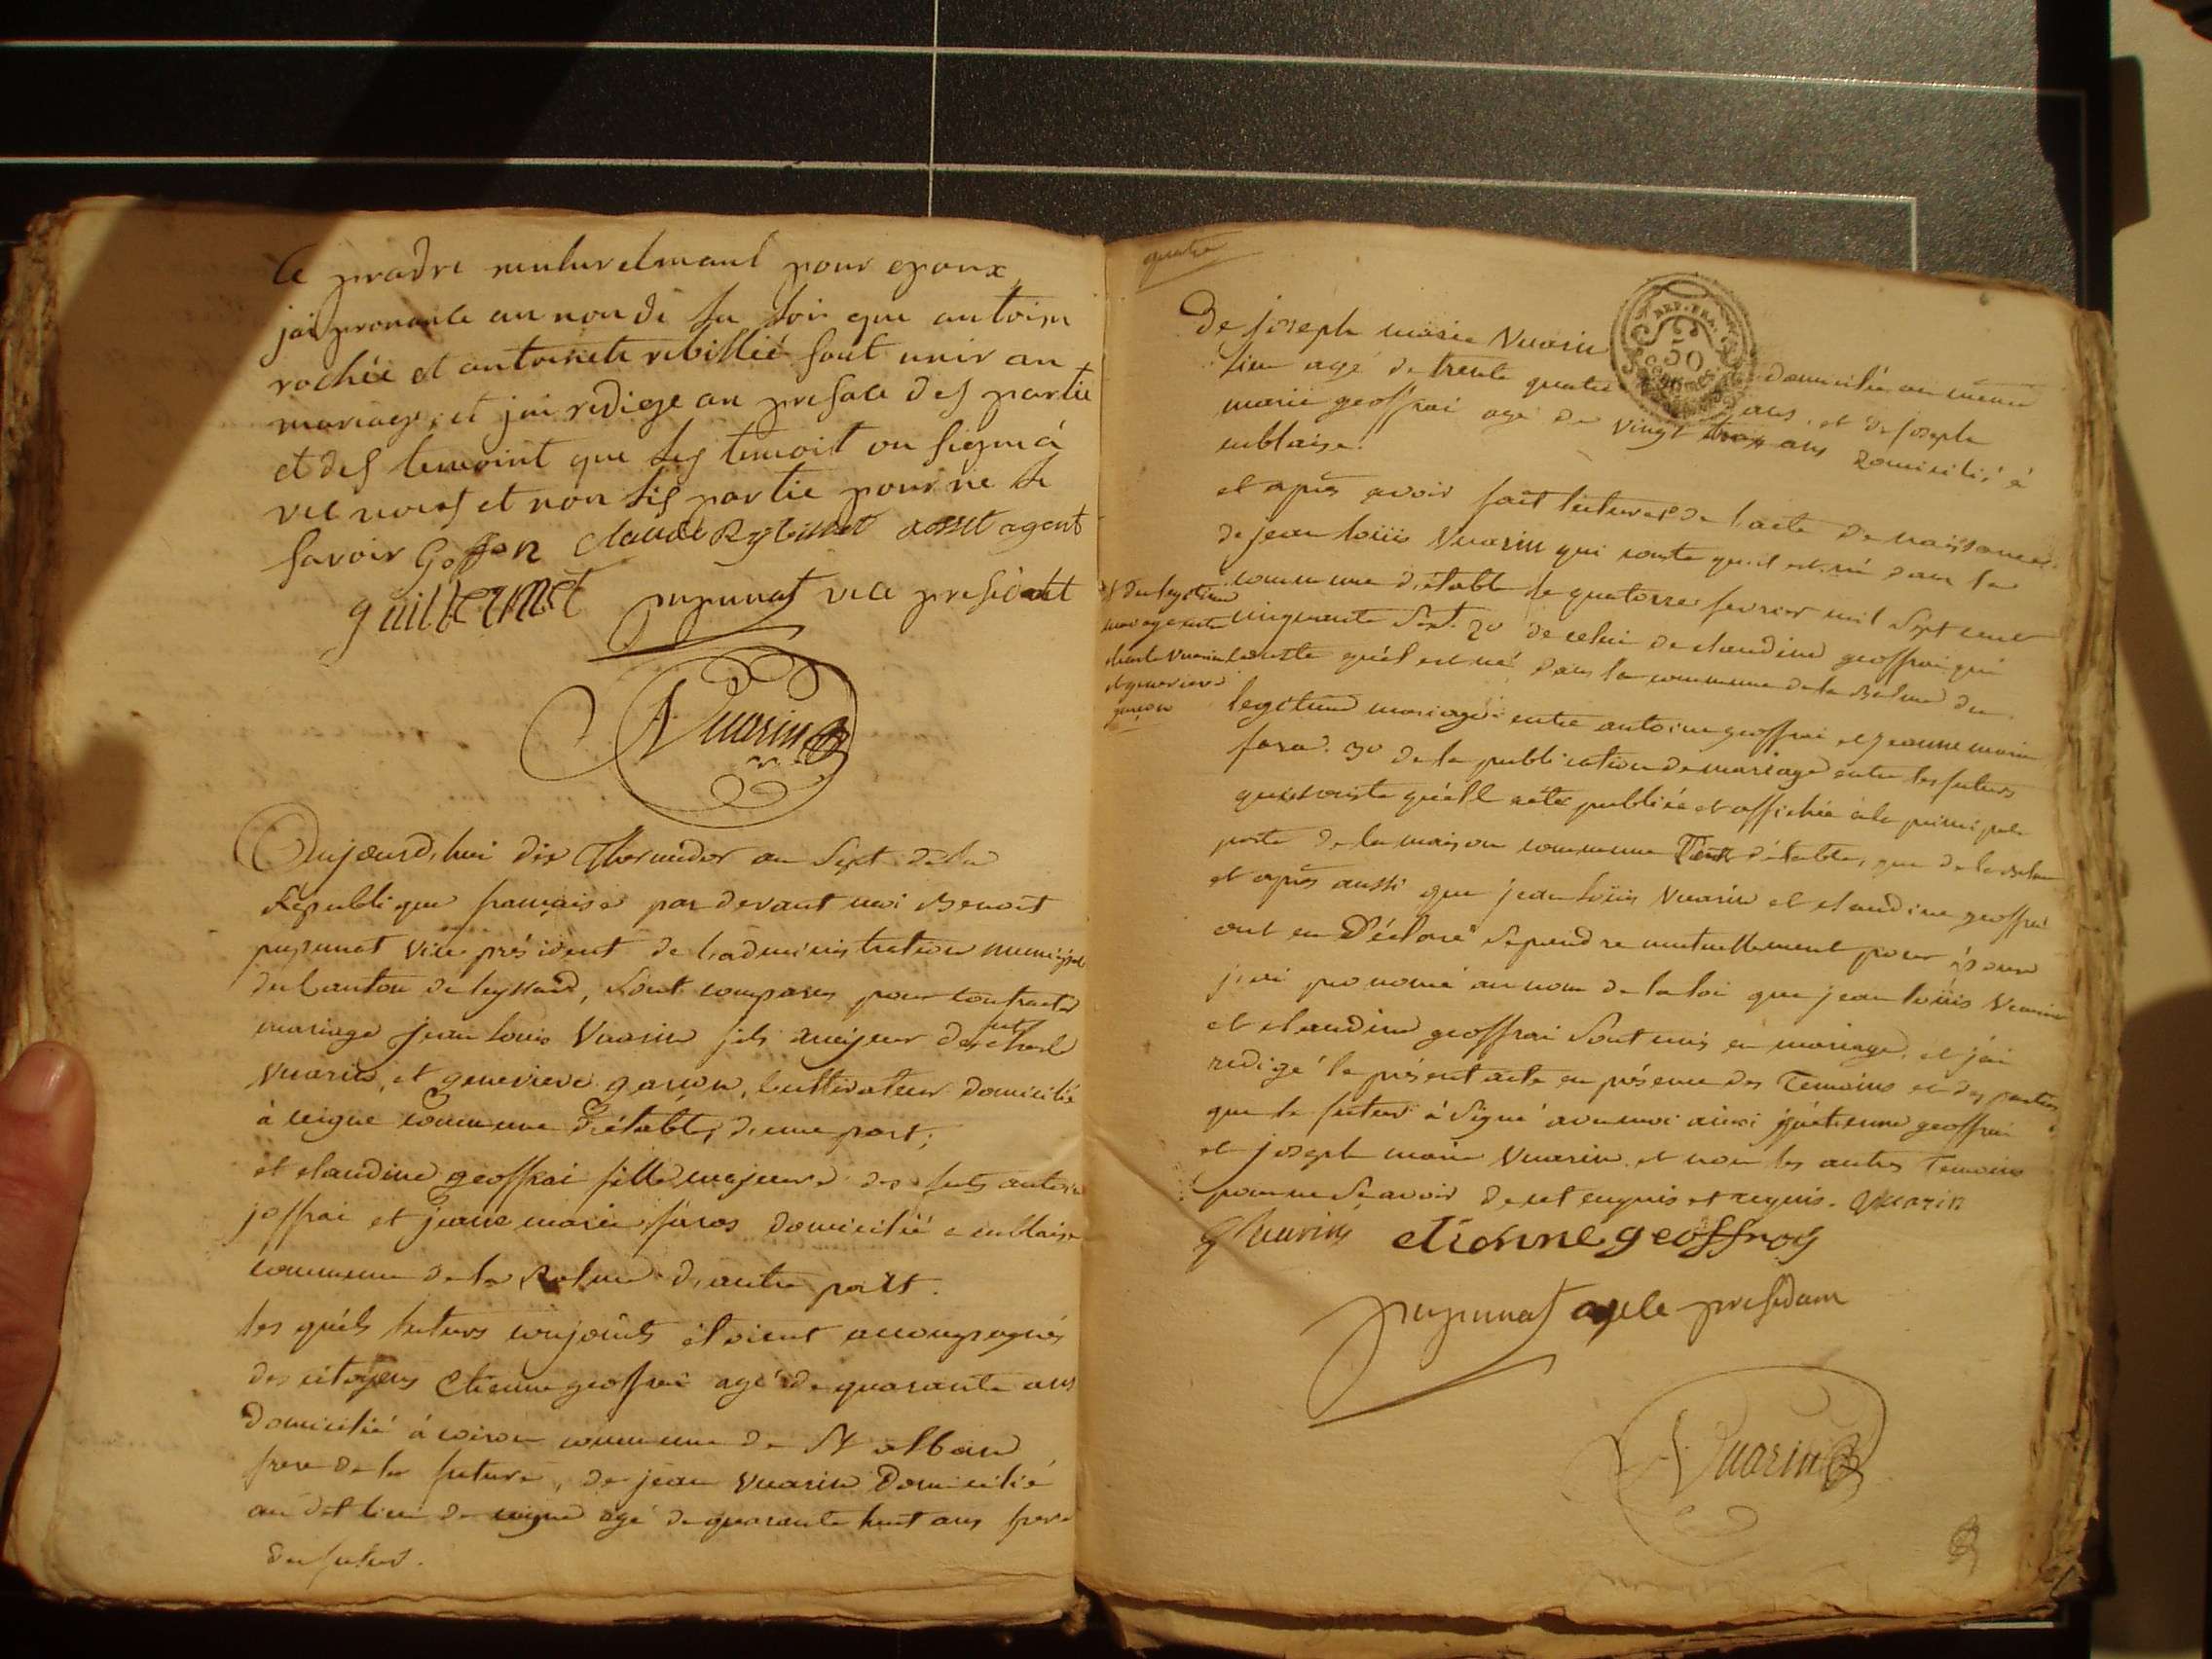 ce pradre muturelmant pour epoux
jai prononce au non de la loir que antoin
rochée et antoinete rebillié sont unir an
mariage, et jai redige an presace des partie
et des temoint que les temoit on signe à
vec nous et non les partie pour ne le
savoir Goffon Claude Reybillet adsit agent
guillermet pupunat vice president
Vuarin
Aujourd'hui dix Thermidor an Sept de la
Republique française par devant moi Benoit
pupunat vice président de l'administration municipal
du Canton de leyssard, sont comparus pour contracter
mariage jean louis Vuarin fils majeur des futs charle
Vuarin, et genevieve garson, cultivateur domicilié
à ceigne commune d'étable, d'une part;
et claudine geoffrai fille majeure des futs antoine
joffrai et jeane marie faras domicilié a emblaise
commune de la Balme d'autre part.
les quels futurs conjoints étoient accompagnés
des citoyens Etienne geoffrai agé de quarante ans
domicilié à coiron commune de St alban
frere de la future, de jean Vuarin Domicilié
au dit lieu de ceigne agé de quarante huit ans frere
du futur.
quatre
REP. FRA.
50
CENTIMES
De joseph marie Vuarin domicilié au même
lieu agé de trente quatre ans, et de joseph
marie geoffrai agé de vingt trois ans domicilié à
emblaise.
et après avoir fait lecture 1º de l'acte de naissance
de jean louis Vuarin qui conste qu'il est né dans la
commune d'étable le quatorze fevrier mil sept cent
cinquante sept. 2º de celui de claudine geoffrai qui
conste qu'el est né dans la commune de la Balme du
legitime mariage entre antoine geoffrai et jeanne marie
faras. 3º de la publication de mariage entre les futurs
qui conste qu'ell a été publiée et affichée à la principale
porte de la maison commune Tant d'étable, que de la Balme
et après aussi que jean louis Vuarin et claudine geoffrai
ont eu Déclaré se prendre mutuellement pour époux
j'ai prononcé au nom de la loi que jean louis Vuarin
et claudine geoffrai sont unis en mariage, et j'ai
redigé le présent acte en présence des Temoins et des parties
que le futur à signé avec moi ainsi qu'etienne geoffrai
et joseph marie Vuarin et non les autres Temoins
pour ne sçavoir de cet enquis et requis. Vuarin
du legitime
mariage entre
charle Vuarin
et genevieve
garson
Vuarin etienne geoffroy
pupunat vice presidam
Vuarin